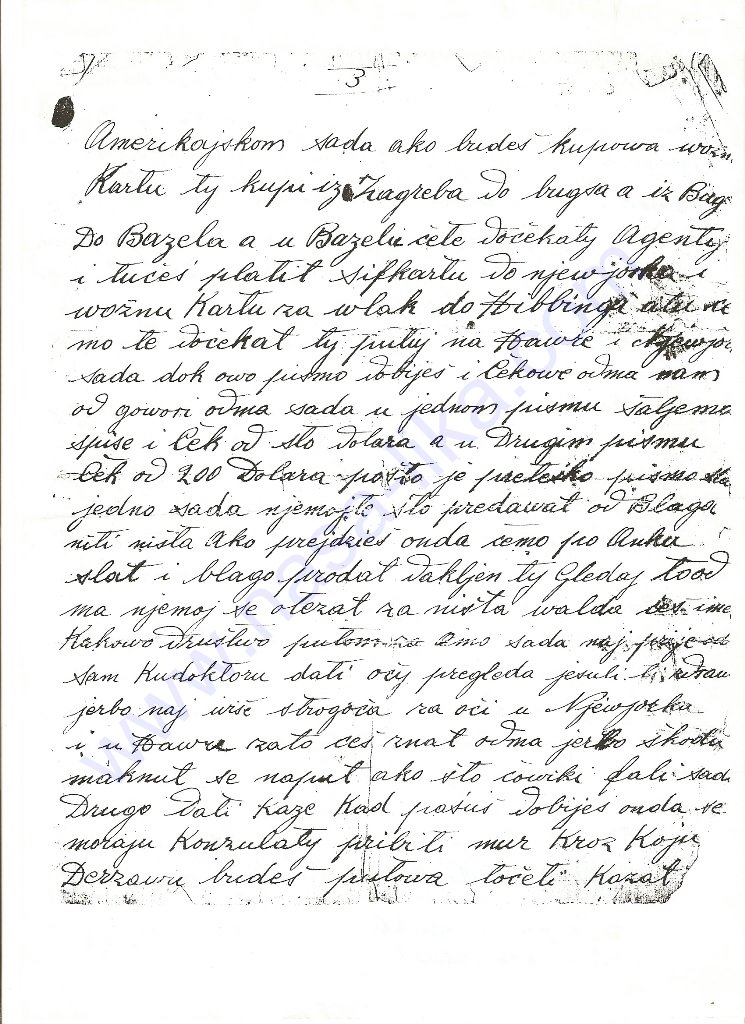 3
Amerikajskom sada ako budeš kupowa wozn
Kartu ty kupi iz Zagreba do bugsa a iz Bag
Do Bazela a u Bazelu ćete dočekaty Agenty
i tućeš platit šifkartu do njewjorka i
woznu Kartu za wlak do Hibbinga atu će
mo te dočekat ty putuj na Hawre i Njewjor
sada dok owo pismo dobiješ i Čekowe odma nam
od gowori odma sada u jednom pismu šaljemo
spise i Ček od sto dolara a u Drugim pismu
Ček od 200 Dolara pošto je preteško pismo
jedno sada njemojte što predawat od Blaga
niti ništa Ako prejdzieš onda ćemo po Anku
slat i blago prodat dakljen ty Gledaj to od
ma njemoj se otezat za ništa walda ćeš ime
Kakowo društwo putom amo sada naj prije od
sam Kudoktoru dati oćy pregleda jesuli li zdraw
jerbo naj wiše strogoća za oći u Njewjorka
i u Hawru zato ćeš znat odma jerbo škodu
maknut se naput ako što čowiki fali sad
Drugo dati Kaze Kad pašuš dobiješ onda se
moraju Konzulaty pribiti mur Kroz Koju
Derzawu budeš putowa toćeti Kazat
www.nasa-lika.com